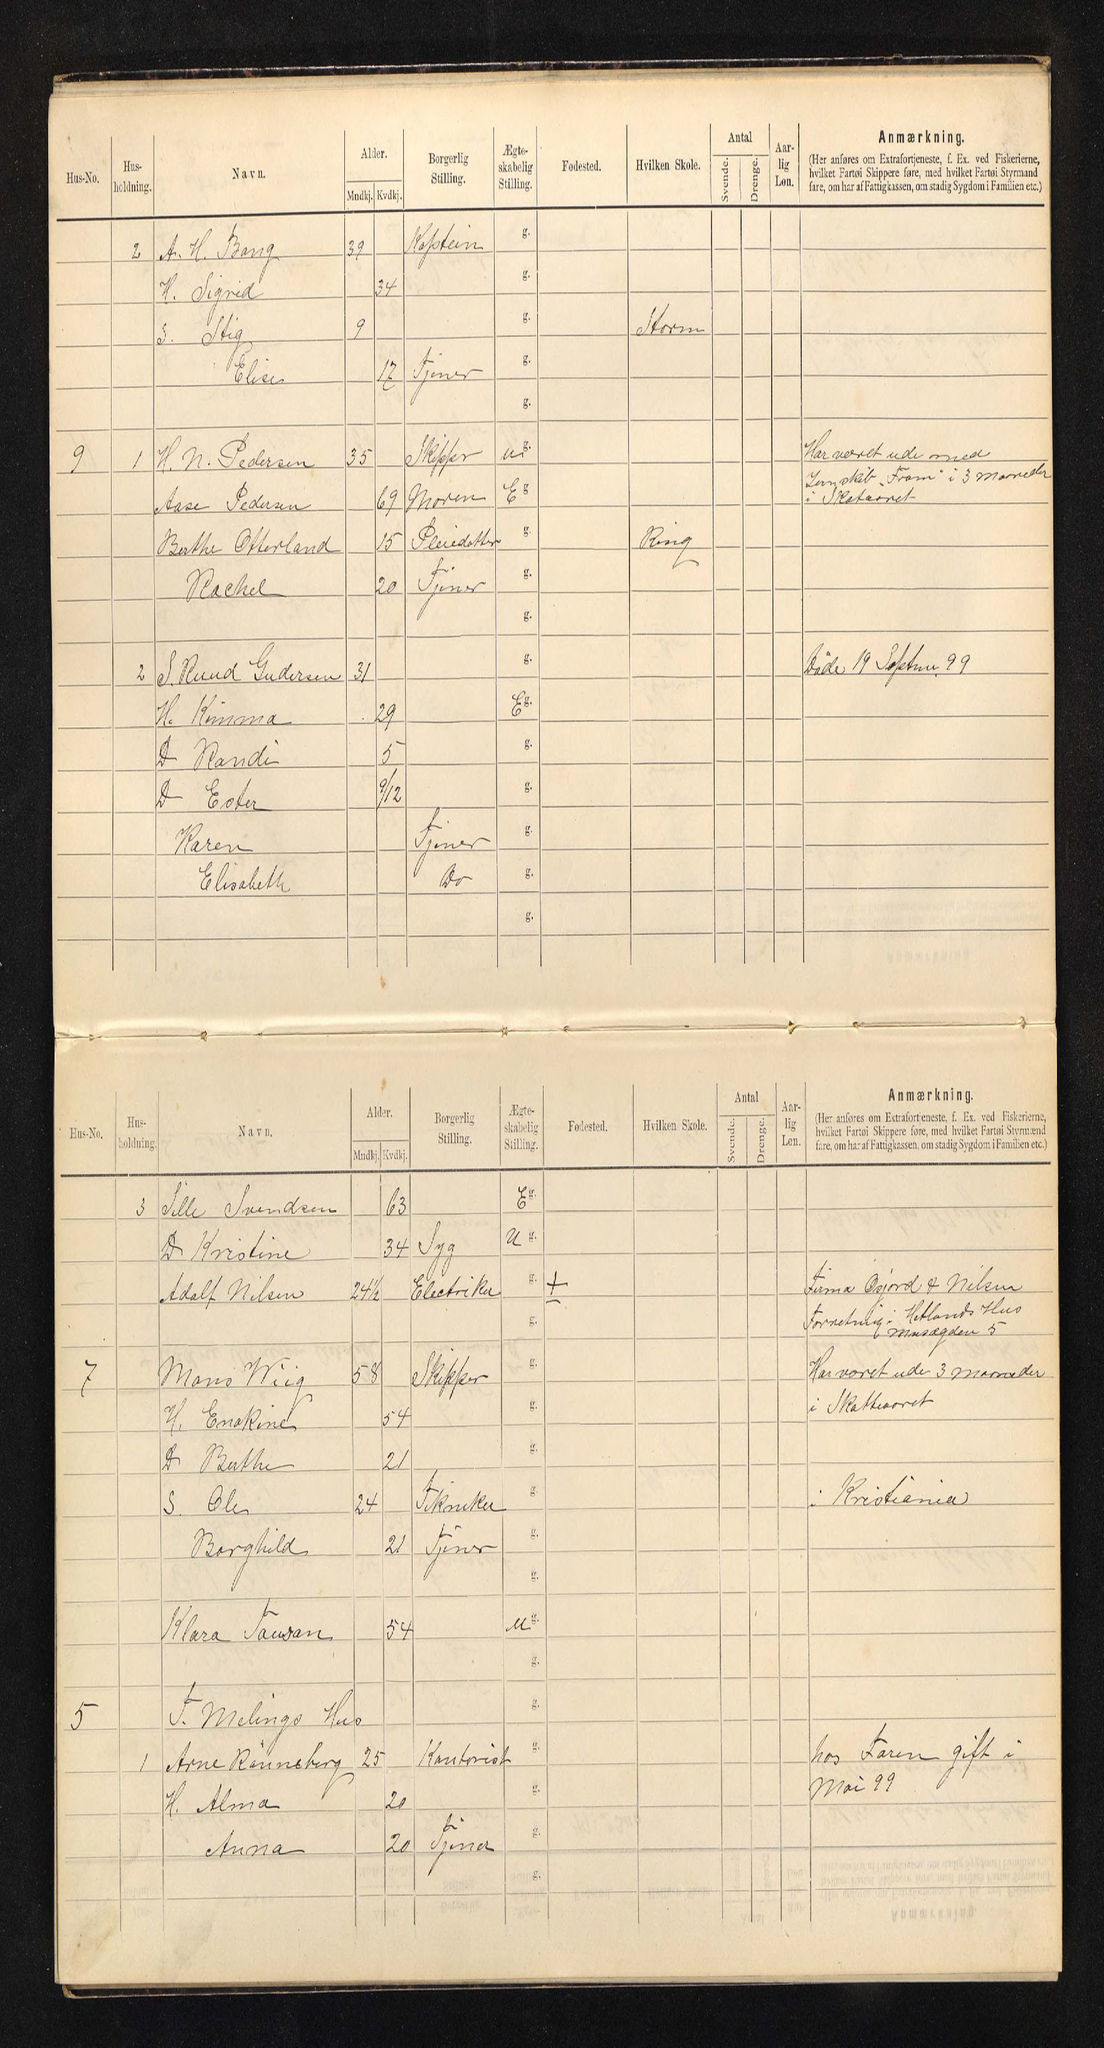 Hus-No. Hus-holdning. Navn. Alder. Mndkj. Kvdkj. Borgerlig Stilling. Ægte-skabelig Stilling. Fødested. Hvilken Skole. Antal Svende. Drenge. Aar-lig Løn. Anmærkning.
(Her anføres om Extrafortjeneste, f. Ex. ved Fiskerierne,
hvilket Fartøi Skippere føre, med hvilket Fartøi Styrmænd
fare, om har af Fattigkassen, om stadig Sygdom i Familien etc.)
2 A. H. Bang 39 Kaptein g.
H. Sigrid 34 g.
S. Stig 9 g. Storm
Elise 17 Tjener g.
g.
9 1 H. N. Pedersen 35 Skipper u g. Har været ude med
Aase Pedersen 69 Moren E g. Jernskib "Fram" i 3 maaneder
i Skataaret
Berthe Otterland 15 Pleiedatter g. Ring
Rachel 20 Tjener g.
g.
2 S. Ruud Gudersen 31 g. Døde 19 Septmr. 99
H. Kimma 29 E g.
D Randi 5 g.
D Ester 9/12 g.
Karen Tjener g.
Elisabeth Do g.
g.
Hus-No. Hus-holdning. Navn. Alder. Mndkj. Kvdkj. Borgerlig Stilling. Ægte-skabelig Stilling. Fødested. Hvilken Skole. Antal Svende. Drenge. Aar-lig Løn. Anmærkning.
(Her anføres om Extrafortjeneste, f. Ex. ved Fiskerierne,
hvilket Fartøi Skippere føre, med hvilket Fartøi Styrmænd
fare, om har af Fattigkassen, om stadig Sygdom i Familien etc.)
3 Sille Svendsen 63 E g.
D Kristine 34 Syg U g.
Adolf Nilsen 24½ Electriker g. + Firma Osjord & Nilsen
g. Forretning i Hetlands Hus
5
7 Mons Wiig 58 Skipper g. Har været ude 3 maaneder
H. Enakine 54 g. i Skatteaaret
D Berthe 21 g.
S. Ole 24 Tekniker g. i Kristiania
Borghild 21 Tjener g.
g.
Klara Tausan 54 u g.
g.
5 T. Melings Hus g.
1 Arne Rønneberg 25 Kontorist g. hos Faren gift i
H. Alma 20 g. Mai 99
Anna 20 Tjener g.
g.